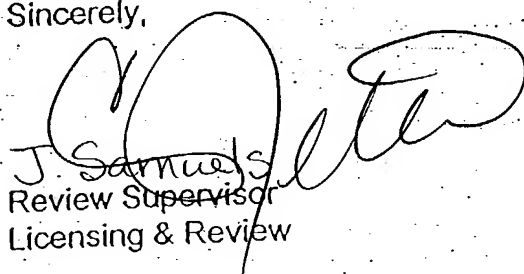 Sincerely,
J. Samuels
Review Supervisor
Licensing & Review